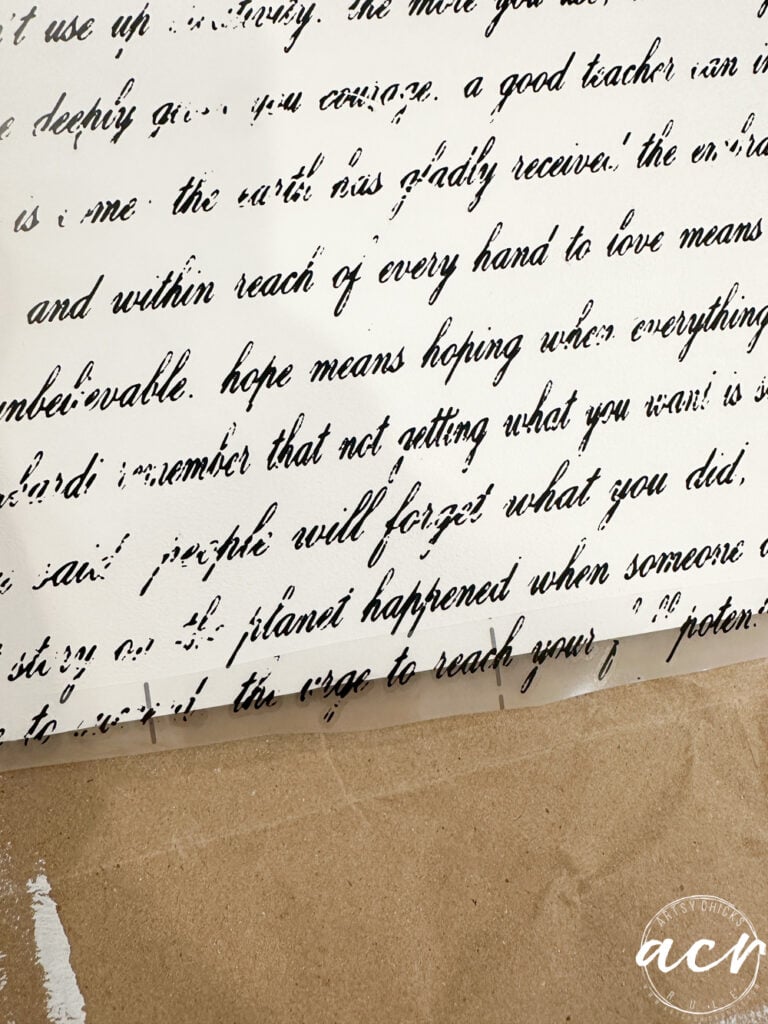 't use up creativity. the more you use,
deeply gives you courage. a good teacher can
is come the earth has gladly received the embra
and within reach of every hand to love means
unbelievable. hope means hoping when everything
bardi remember that not getting what you want is
said people will forget what you did,
story on the planet happened when someone
to the urge to reach your full poten
ARTSY CHICKS
acr
RULE